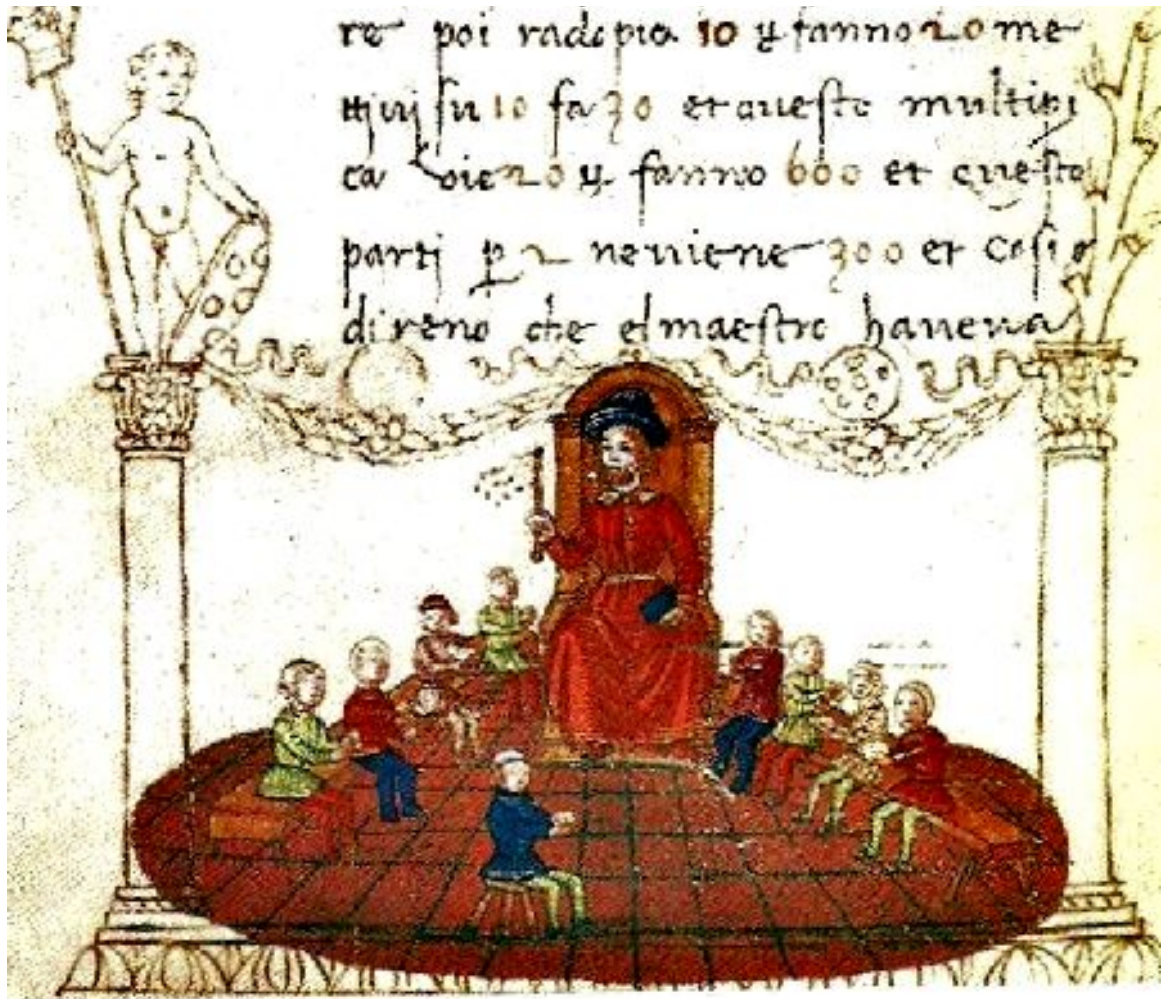 re poi radopia 10 ꝫ fanno 20 me
su 10 fa 30 et questo multipi
ca 20 ꝫ fanno 600 et questo
parti ꝑ 2 ne viene 300 et cosi
direno che el maestro haveva